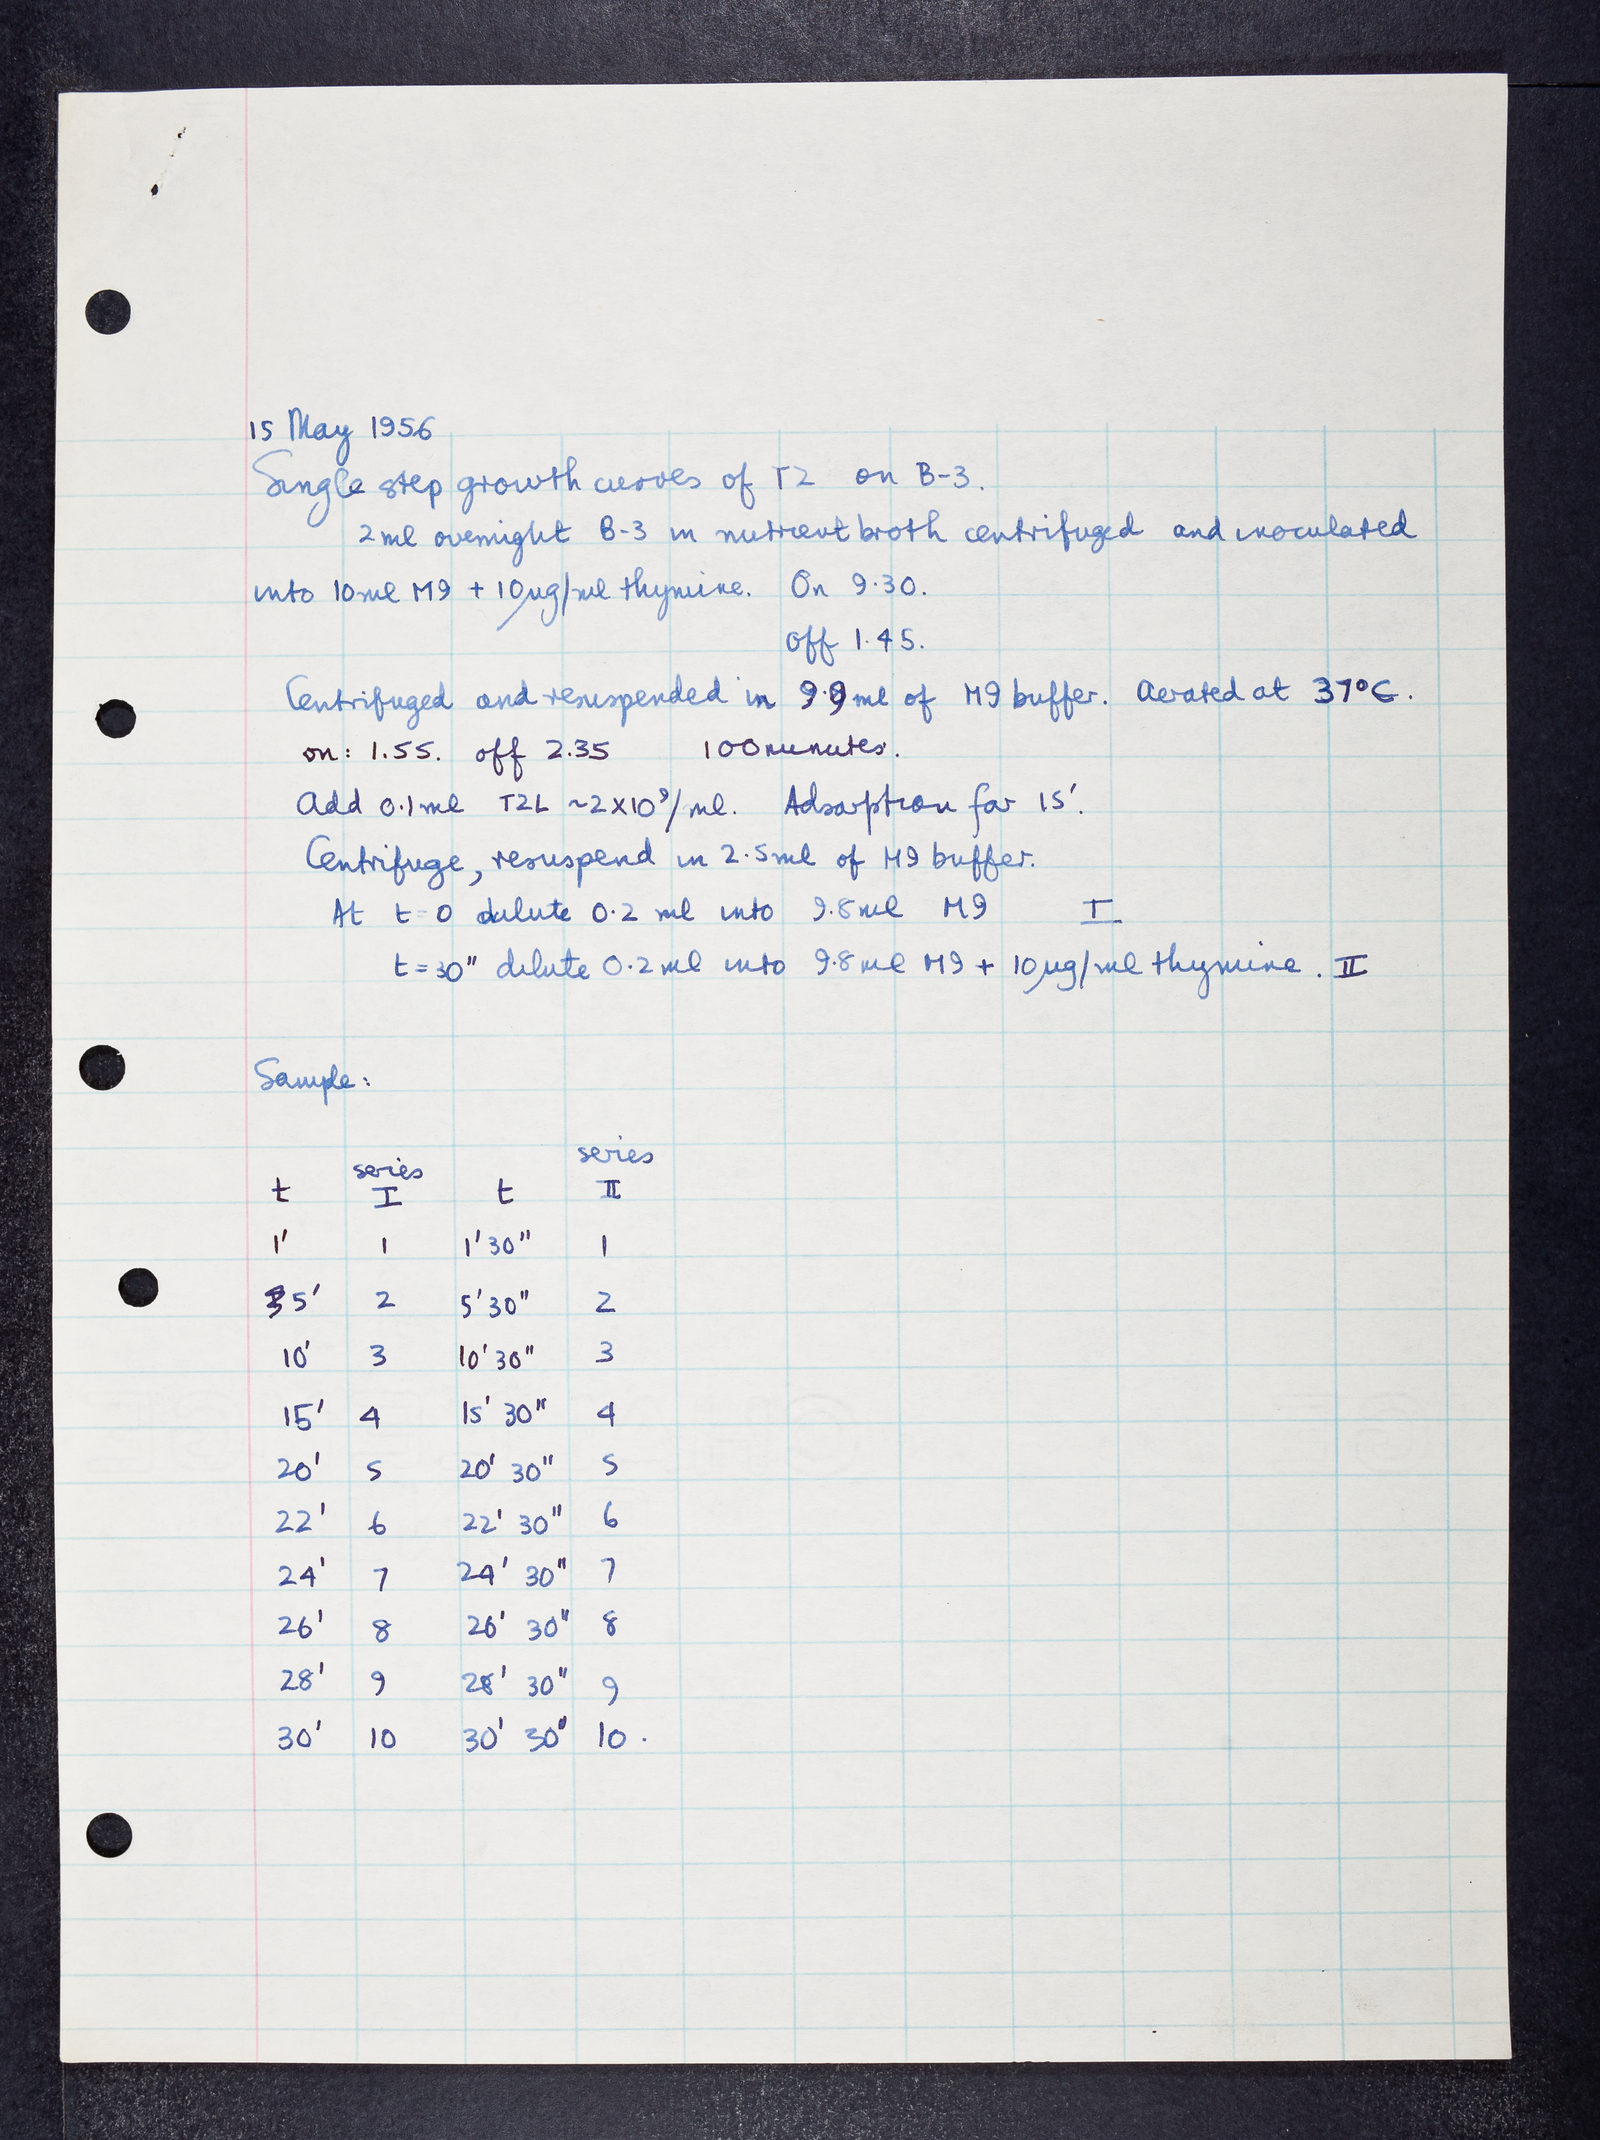 15 May 1956
Single step growth curves of T2 on B-3.
2ml overnight B-3 in nutrient broth centrifuged and inoculated
into 10ml M9 + 10µg/ml thymine. On 9.30.
off 1.45.
Centrifuged and resuspended in 9.9ml of M9 buffer. Aerated at 37°C.
on: 1.55. off 2.35 100 minutes.
Add 0.1ml T2L ~2x10⁹/ml. Adsorption for 15'.
Centrifuge, resuspend in 2.5ml of M9 buffer.
At t=0 dilute 0.2 ml into 9.8ml M9 I
t=30" dilute 0.2ml into 9.8ml M9 + 10µg/ml thymine. II
Sample:
series series
t I t II
1' 1 1'30" 1
5' 2 5'30" 2
10' 3 10'30" 3
15' 4 15' 30" 4
20' 5 20' 30" 5
22' 6 22' 30" 6
24' 7 24' 30" 7
26' 8 26' 30" 8
28' 9 28' 30" 9
30' 10 30' 30" 10.